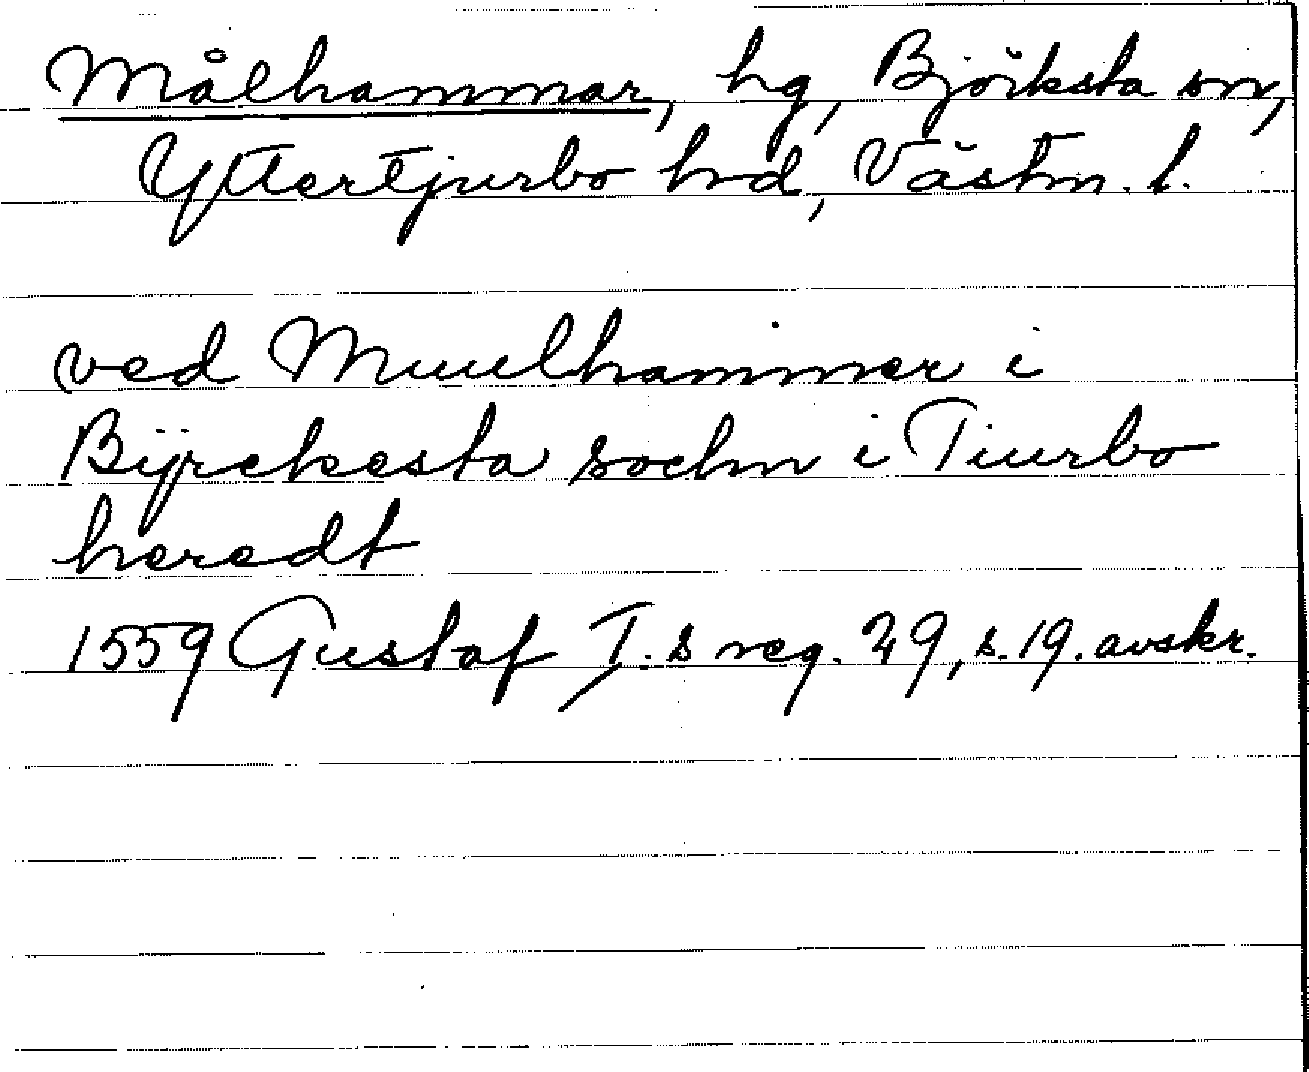 Målhammar, hg, Björksta sn,
Yttertjurbo hrd, Västm. l.
ved Muulhammer i
Byrckesta sochn i Tiurbo
heredt
1559 Gustaf I.s reg. 29, s. 19. avskr.